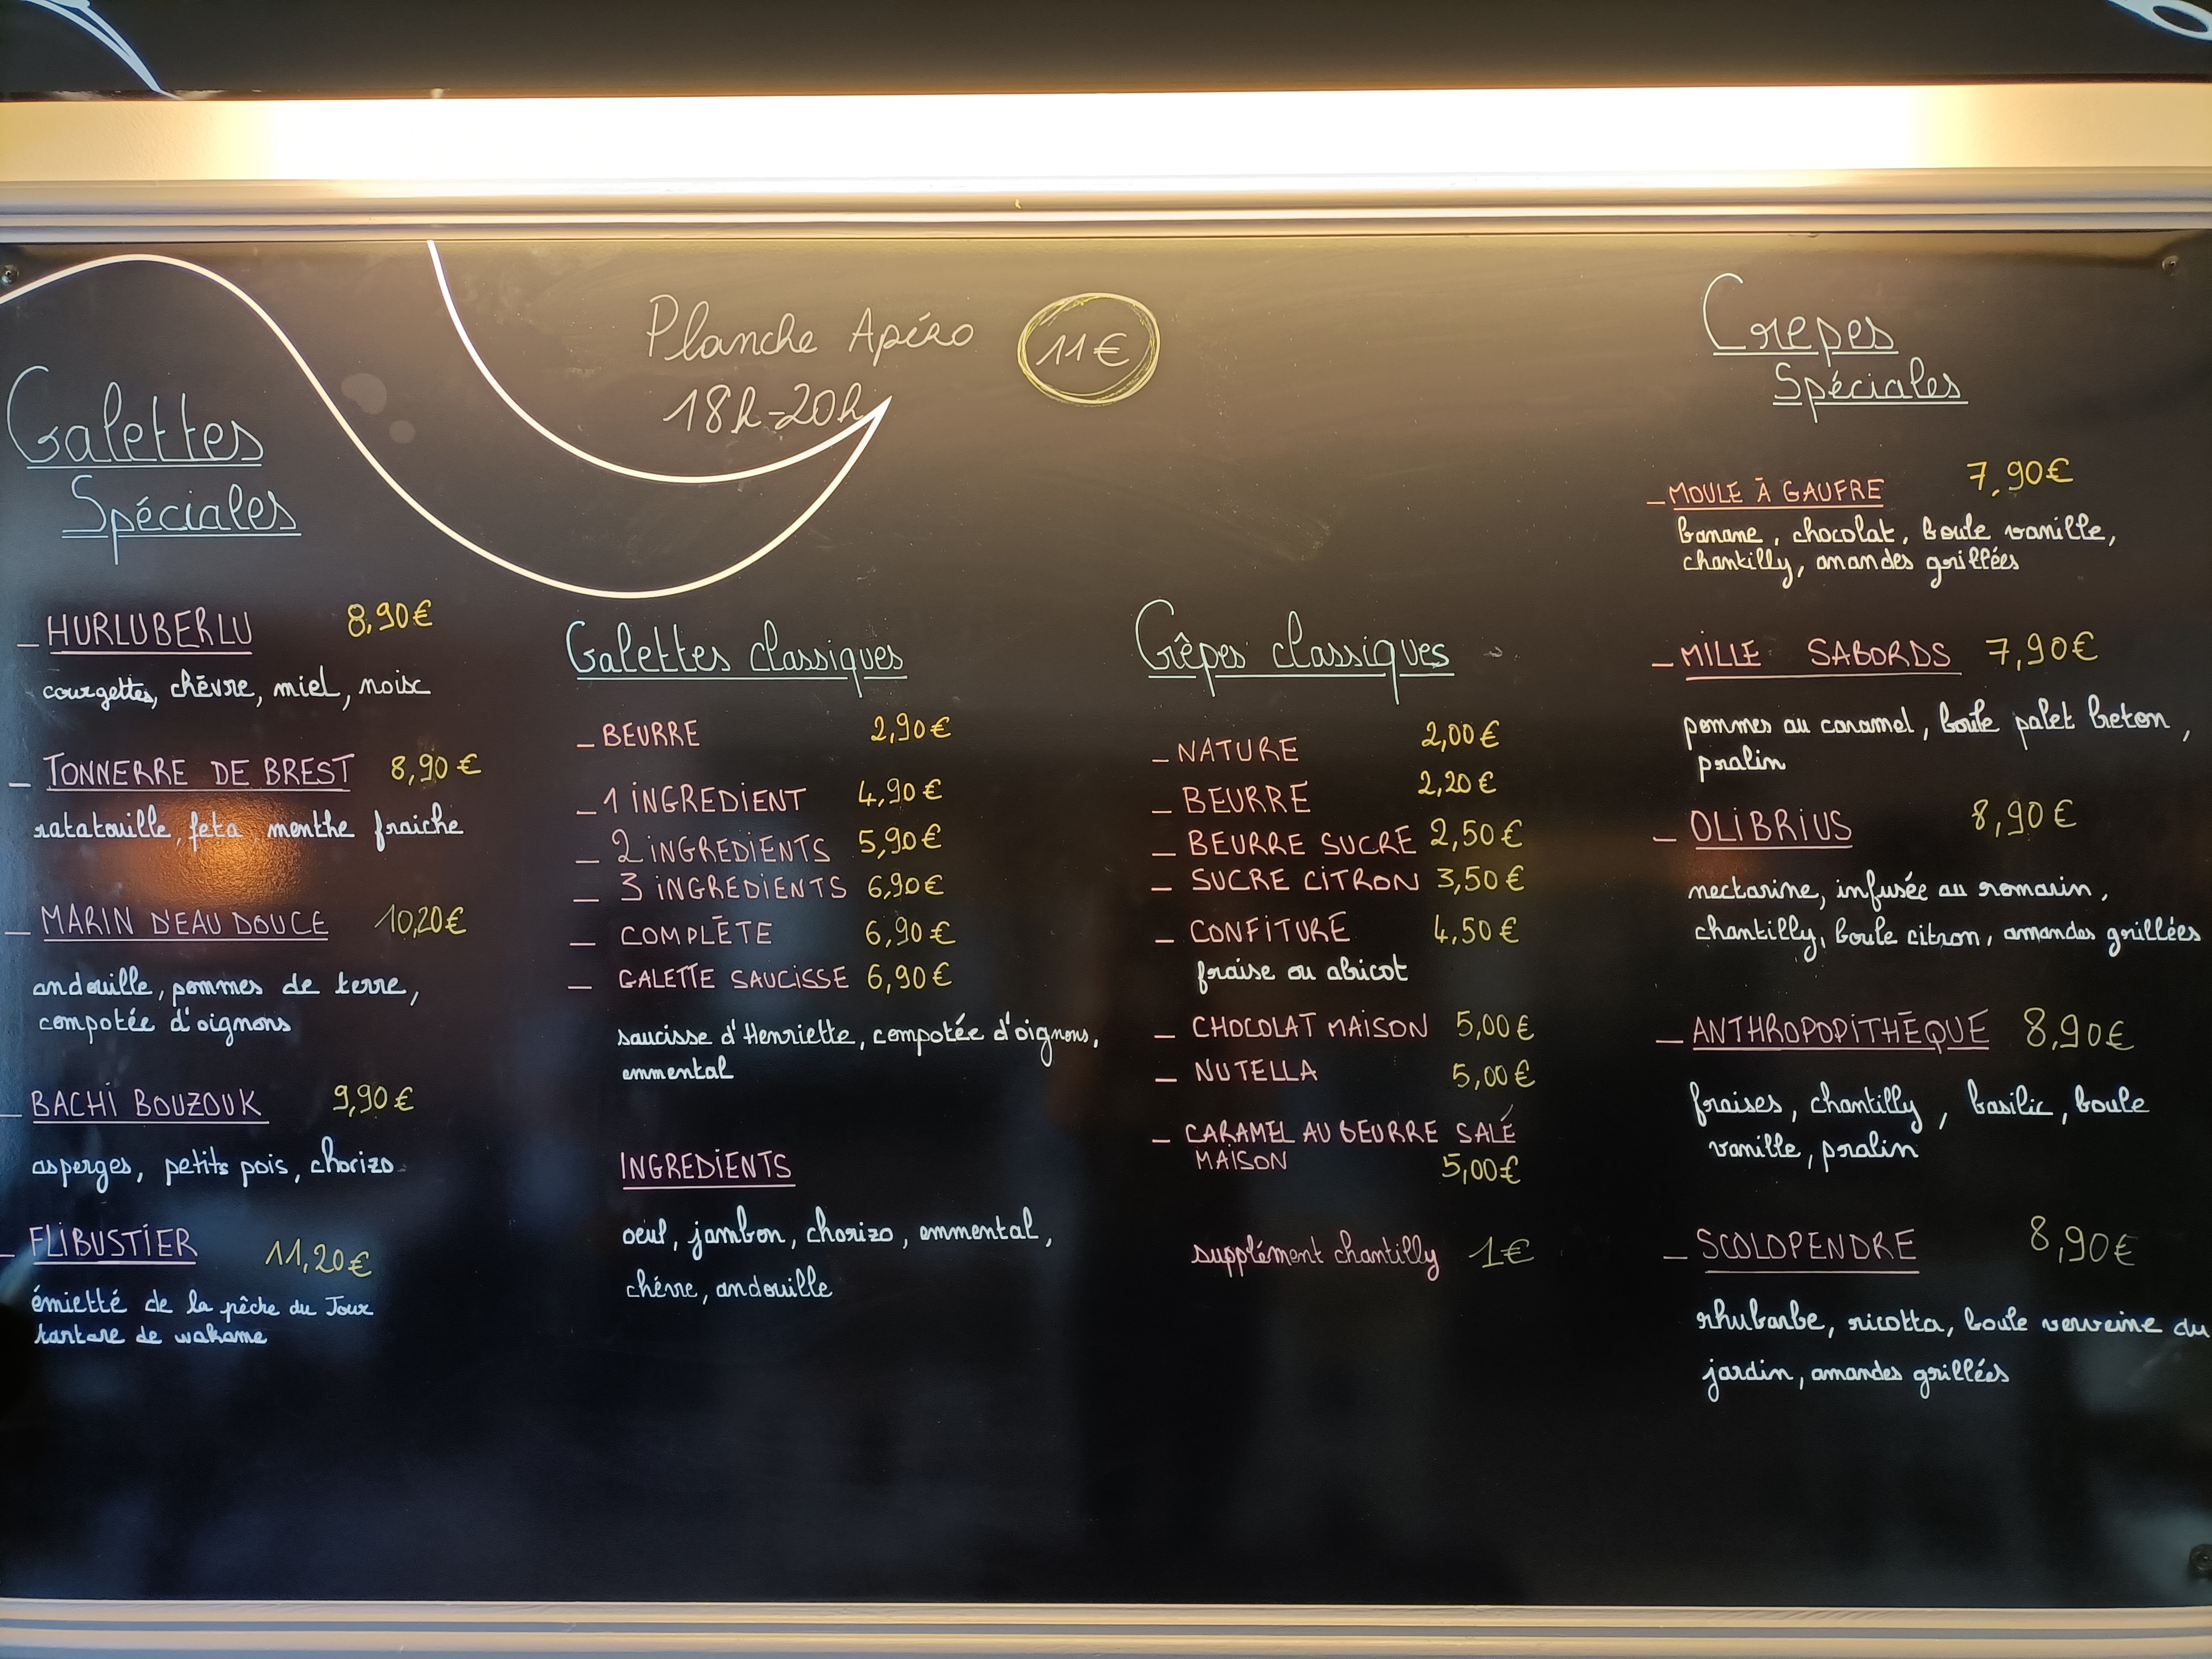 Planche Apéro 11€
18h-20h
Galettes
Spéciales
_ HURLUBERLU 8,90€
courgettes, chèvre, miel, noisc
_ TONNERRE DE BREST 8,90€
ratatouille, feta menthe fraiche
_ MARIN D'EAU DOUCE 10,20€
andouille, pommes de terre,
compotée d'oignons
_ BACHI BOUZOUK 9,90€
asperges, petits pois, chorizo
_ FLIBUSTIER 11,20€
émietté de la pêche du Jour
tartare de wakame
Galettes classiques
_ BEURRE 2,90€
_ 1 INGREDIENT 4,90€
_ 2 INGREDIENTS 5,90€
_ 3 INGREDIENTS 6,90€
_ COMPLÈTE 6,90€
_ GALETTE SAUCISSE 6,90€
saucisse d'Henriette, compotée d'oignons,
emmental
INGREDIENTS
oeuf, jambon, chorizo, emmental,
chévre, andouille
Crêpes classiques
_ NATURE 2,00€
_ BEURRE 2,20€
_ BEURRE SUCRE 2,50€
_ SUCRE CITRON 3,50€
_ CONFITURE 4,50€
fraise ou abricot
_ CHOCOLAT MAISON 5,00€
_ NUTELLA 5,00€
_ CARAMEL AU BEURRE SALÉ
MAISON 5,00€
supplément chantilly 1€
Crepes
Spéciales
_ MOULE À GAUFRE 7,90€
banane, chocolat, boule vanille,
chantilly, amandes grillées
_ MILLE SABORDS 7,90€
pommes au caramel, boule palet breton,
pralin
_ OLIBRIUS 8,90€
nectarine, infusée au romarin,
chantilly, boule citron, amandes grillées
_ ANTHROPOPITHÈQUE 8,90€
fraises, chantilly, basilic, boule
vanille, pralin
_ SCOLOPENDRE 8,90€
rhubarbe, ricotta, boule verveine du
jardin, amandes grillées